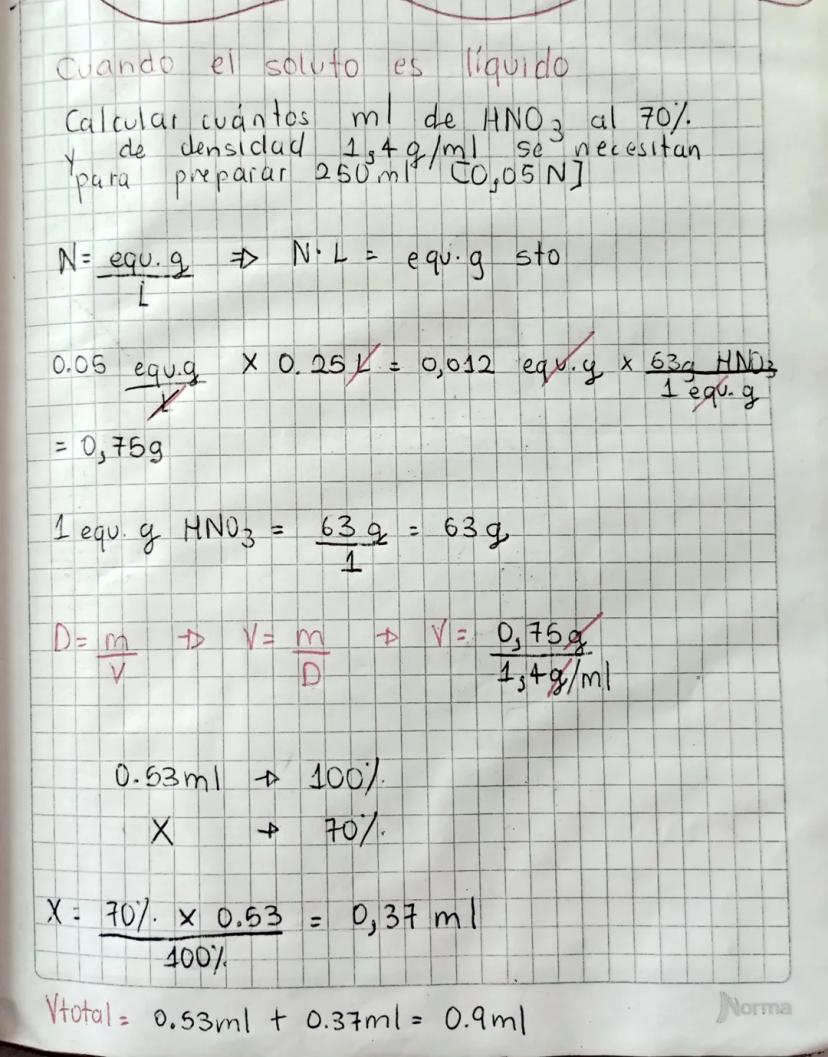 Cuando el soluto es líquido
Calcular cuántos ml de HNO₃ al 70%.
y de densidad 1,4 g/ml se necesitan
para preparar 250ml [0,05N]
N = equ. g / L ⇒ N · L = equ. g sto
0.05 equ.g / L × 0.25 L = 0,012 equ. g × 63g HNO₃ / 1 equ. g
= 0,75g
1 equ. g HNO₃ = 63 g / 1 = 63 g
D = m / V ⇒ V = m / D ⇒ V = 0,75g / 1,4g/ml
0.53ml → 100%.
X → 70%.
X = 70%. × 0.53 / 100%. = 0,37 ml
Vtotal = 0.53ml + 0.37ml = 0.9ml
Norma